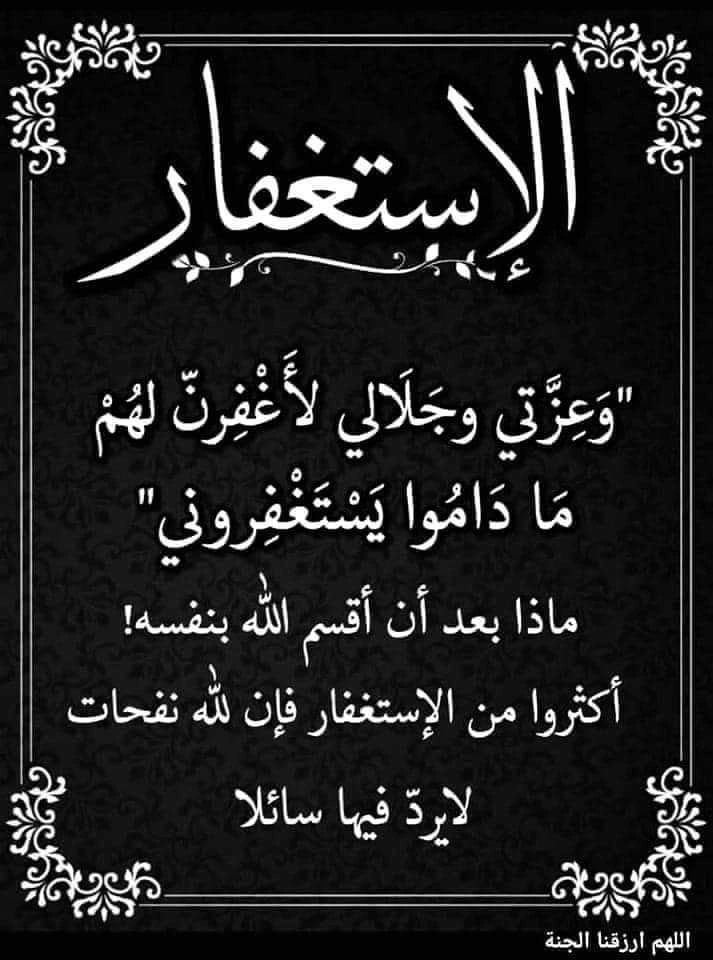 الإستغفار
"وَعِزَّتي وجَلَالي لأَغْفِرنّ لهُمْ
مَا دَامُوا يَسْتَغْفِروني"
ماذا بعد أن أقسم الله بنفسه!
أكثروا من الإستغفار فإن لله نفحات
لايردّ فيها سائلا
اللهم ارزقنا الجنة